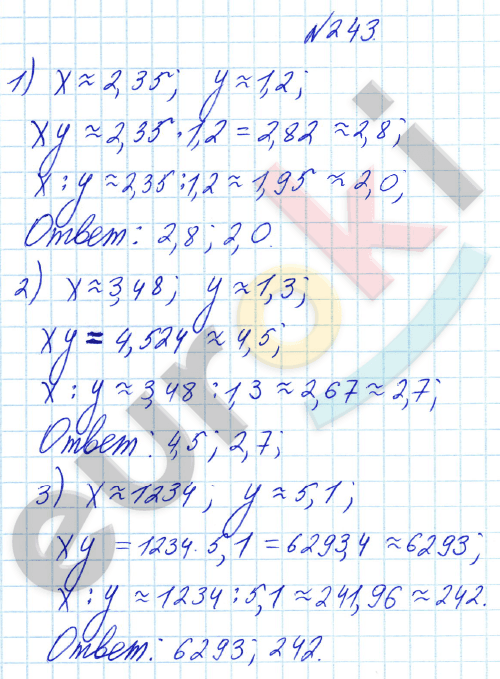 №243.
1) x ≈ 2,35; y ≈ 1,2;
xy ≈ 2,35 · 1,2 = 2,82 ≈ 2,8;
x : y ≈ 2,35 : 1,2 ≈ 1,95 ≈ 2,0;
Ответ: 2,8; 2,0.
2) x ≈ 3,48; y ≈ 1,3;
xy = 4,524 ≈ 4,5;
x : y ≈ 3,48 : 1,3 ≈ 2,67 ≈ 2,7;
Ответ: 4,5; 2,7;
3) x ≈ 1234; y ≈ 5,1;
xy = 1234 · 5,1 = 6293,4 ≈ 6293;
x : y ≈ 1234 : 5,1 ≈ 241,96 ≈ 242.
Ответ: 6293; 242.
euroki